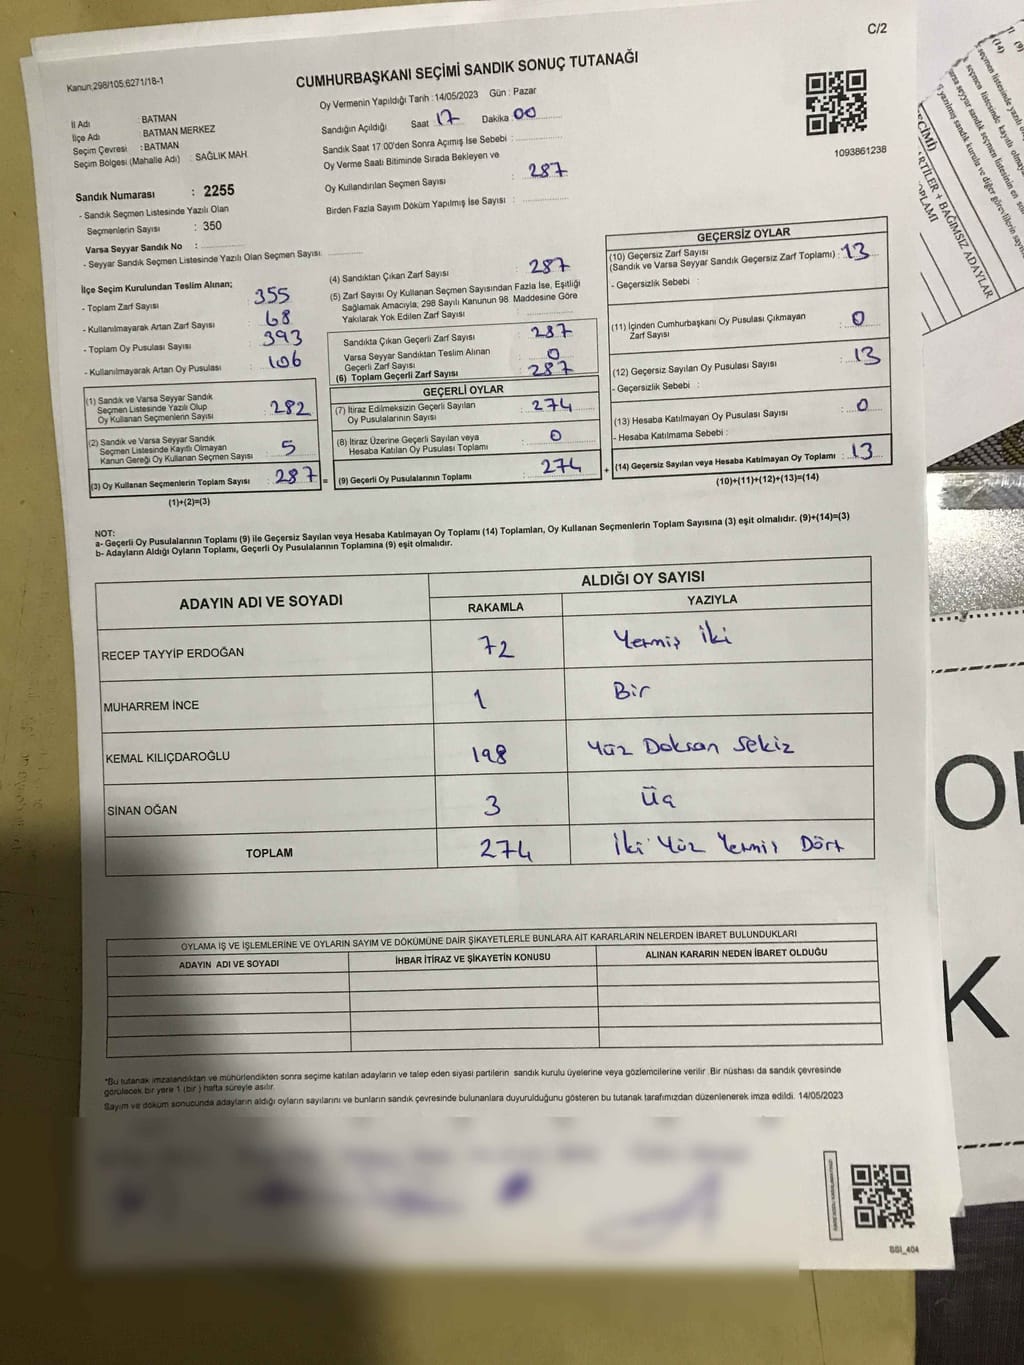 C/2
Kanun:298/105;6271/18-1
CUMHURBAŞKANI SEÇİMİ SANDIK SONUÇ TUTANAĞI
İl Adı : BATMAN
İlçe Adı : BATMAN MERKEZ
Seçim Çevresi : BATMAN
Seçim Bölgesi (Mahalle Adı) : SAĞLIK MAH.
Oy Vermenin Yapıldığı Tarih : 14/05/2023 Gün : Pazar
Sandığın Açıldığı Saat 17 Dakika 00
Sandık Saat 17:00'den Sonra Açımış İse Sebebi :
Oy Verme Saati Bitiminde Sırada Bekleyen ve
Oy Kullandırılan Seçmen Sayısı : 287
Birden Fazla Sayım Döküm Yapılmış İse Sayısı :
1093861238
Sandık Numarası : 2255
- Sandık Seçmen Listesinde Yazılı Olan
Seçmenlerin Sayısı : 350
Varsa Seyyar Sandık No :
- Seyyar Sandık Seçmen Listesinde Yazılı Olan Seçmen Sayısı:
İlçe Seçim Kurulundan Teslim Alınan;
- Toplam Zarf Sayısı : 355
- Kullanılmayarak Artan Zarf Sayısı : 68
- Toplam Oy Pusulası Sayısı : 393
- Kullanılmayarak Artan Oy Pusulası : 106
(1) Sandık ve Varsa Seyyar Sandık
Seçmen Listesinde Yazılı Olup
Oy Kullanan Seçmenlerin Sayısı : 282
(2) Sandık ve Varsa Seyyar Sandık
Seçmen Listesinde Kayıtlı Olmayan
Kanun Gereği Oy Kullanan Seçmen Sayısı : 5
(3) Oy Kullanan Seçmenlerin Toplam Sayısı : 287 =
(1)+(2)=(3)
(4) Sandıktan Çıkan Zarf Sayısı : 287
(5) Zarf Sayısı Oy Kullanan Seçmen Sayısından Fazla İse, Eşitliği
Sağlamak Amacıyla; 298 Sayılı Kanunun 98. Maddesine Göre
Yakılarak Yok Edilen Zarf Sayısı :
Sandıkta Çıkan Geçerli Zarf Sayısı : 287
Varsa Seyyar Sandıktan Teslim Alınan
Geçerli Zarf Sayısı : 0
(6) Toplam Geçerli Zarf Sayısı : 287
GEÇERLİ OYLAR
(7) İtiraz Edilmeksizin Geçerli Sayılan
Oy Pusulalarının Sayısı : 274
(8) İtiraz Üzerine Geçerli Sayılan veya
Hesaba Katılan Oy Pusulası Toplamı : 0
(9) Geçerli Oy Pusulalarının Toplamı : 274 +
GEÇERSİZ OYLAR
(10) Geçersiz Zarf Sayısı
(Sandık ve Varsa Seyyar Sandık Geçersiz Zarf Toplamı) : 13
- Geçersizlik Sebebi :
(11) İçinden Cumhurbaşkanı Oy Pusulası Çıkmayan
Zarf Sayısı : 0
(12) Geçersiz Sayılan Oy Pusulası Sayısı : 13
- Geçersizlik Sebebi :
(13) Hesaba Katılmayan Oy Pusulası Sayısı : 0
- Hesaba Katılmama Sebebi :
(14) Geçersiz Sayılan veya Hesaba Katılmayan Oy Toplamı : 13
(10)+(11)+(12)+(13)=(14)
NOT:
a- Geçerli Oy Pusulalarının Toplamı (9) ile Geçersiz Sayılan veya Hesaba Katılmayan Oy Toplamı (14) Toplamları, Oy Kullanan Seçmenlerin Toplam Sayısına (3) eşit olmalıdır. (9)+(14)=(3)
b- Adayların Aldığı Oyların Toplamı, Geçerli Oy Pusulalarının Toplamına (9) eşit olmalıdır.
ADAYIN ADI VE SOYADI
ALDIĞI OY SAYISI
RAKAMLA YAZIYLA
RECEP TAYYİP ERDOĞAN 72 Yetmiş iki
MUHARREM İNCE 1 Bir
KEMAL KILIÇDAROĞLU 198 Yüz Doksan Sekiz
SİNAN OĞAN 3 Üç
TOPLAM 274 İki Yüz Yetmiş Dört
OYLAMA İŞ VE İŞLEMLERİNE VE OYLARIN SAYIM VE DÖKÜMÜNE DAİR ŞİKAYETLERLE BUNLARA AİT KARARLARIN NELERDEN İBARET BULUNDUKLARI
ADAYIN ADI VE SOYADI İHBAR İTİRAZ VE ŞİKAYETİN KONUSU ALINAN KARARIN NEDEN İBARET OLDUĞU
*Bu tutanak imzalandıktan ve mühürlendikten sonra seçime katılan adayların ve talep eden siyasi partilerin sandık kurulu üyelerine veya gözlemcilerine verilir. Bir nüshası da sandık çevresinde
görülecek bir yere 1 (bir ) hafta süreyle asılır.
Sayım ve döküm sonucunda adayların aldığı oyların sayılarını ve bunların sandık çevresinde bulunanlara duyurulduğunu gösteren bu tutanak tarafımızdan düzenlenerek imza edildi. 14/05/2023
SSI_404
ARTİLER + BAĞIMSIZ ADAYLAR
OPLAMI
K